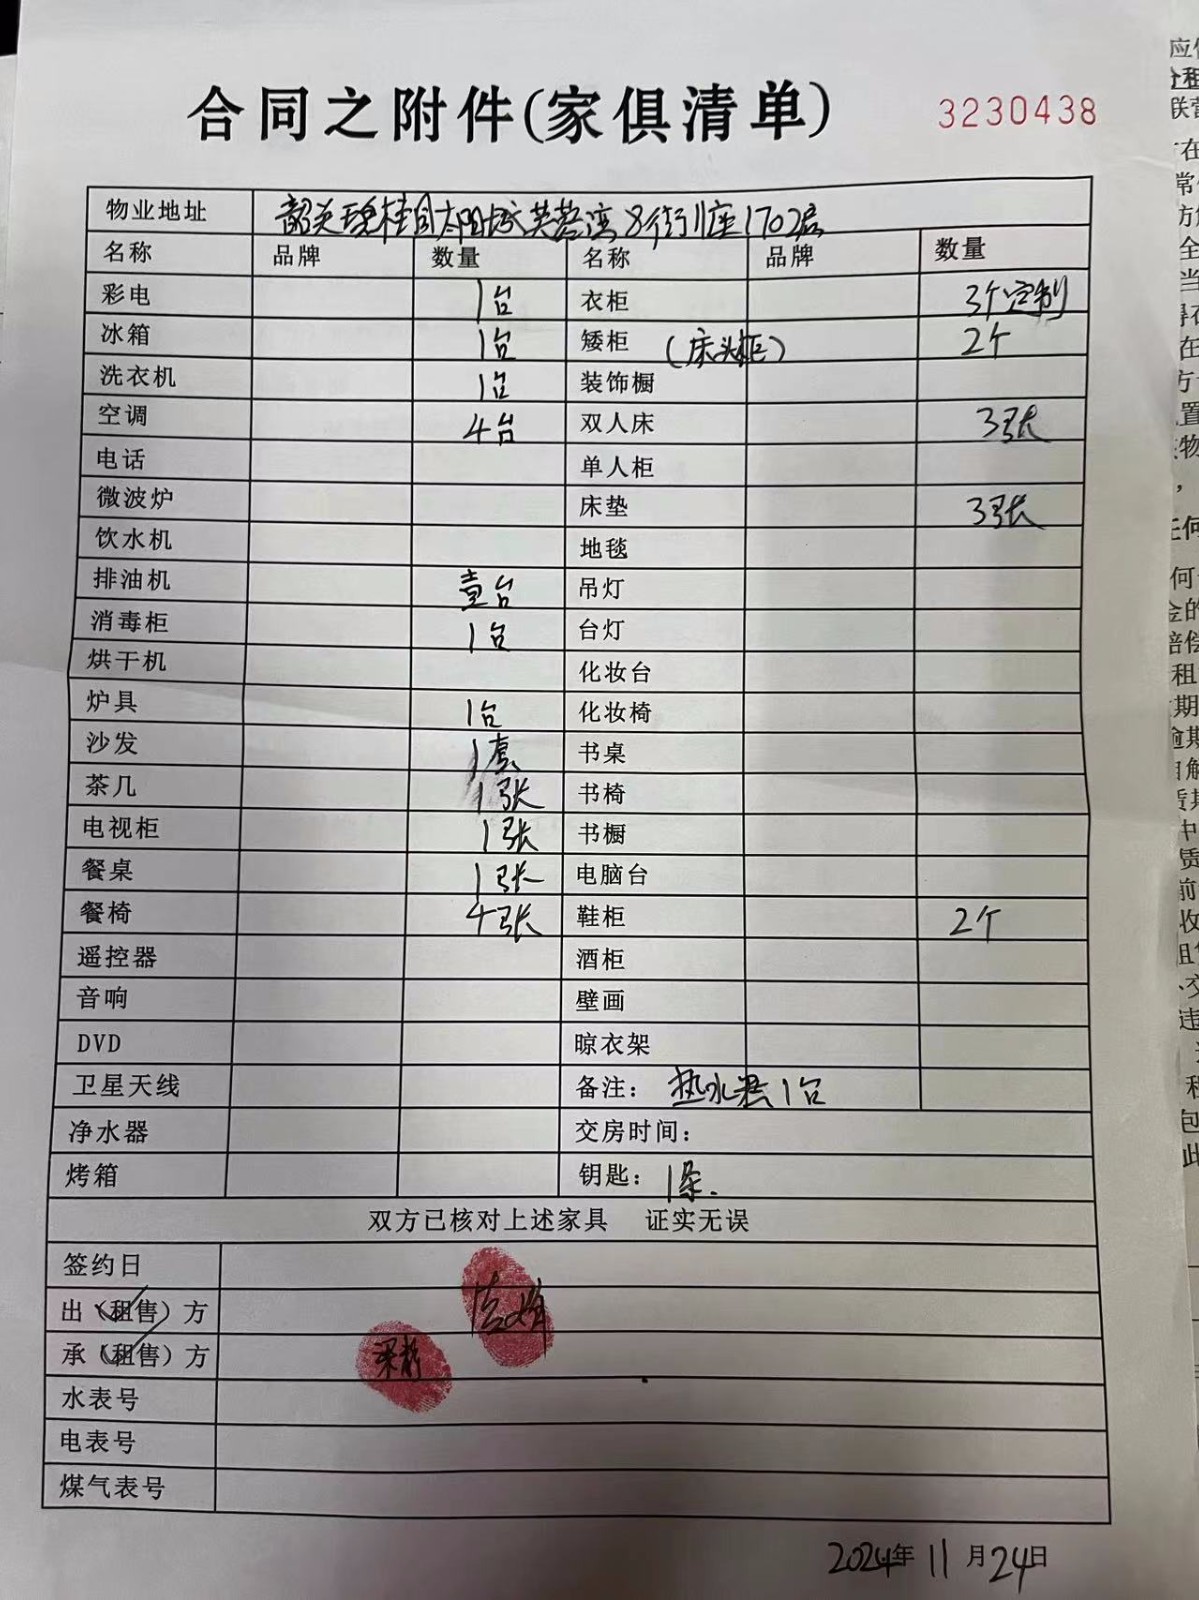 合同之附件(家俱清单) 3230438
物业地址 韶关碧桂园太阳城芙蓉湾8街11座1702房
名称 品牌 数量 名称 品牌 数量
彩电 1台 衣柜 3个定制
冰箱 1台 矮柜 (床头柜) 2个
洗衣机 1台 装饰橱
空调 4台 双人床 3张
电话 单人柜
微波炉 床垫 3张
饮水机 地毯
排油机 壹台 吊灯
消毒柜 1台 台灯
烘干机 化妆台
炉具 1台 化妆椅
沙发 1套 书桌
茶几 1张 书椅
电视柜 1张 书橱
餐桌 1张 电脑台
餐椅 4张 鞋柜 2个
遥控器 酒柜
音响 壁画
DVD 晾衣架
卫星天线 备注: 热水器1台
净水器 交房时间:
烤箱 钥匙: 1条.
双方已核对上述家具 证实无误
签约日
出(租售)方
承(租售)方
水表号
电表号
煤气表号
2024年11月24日